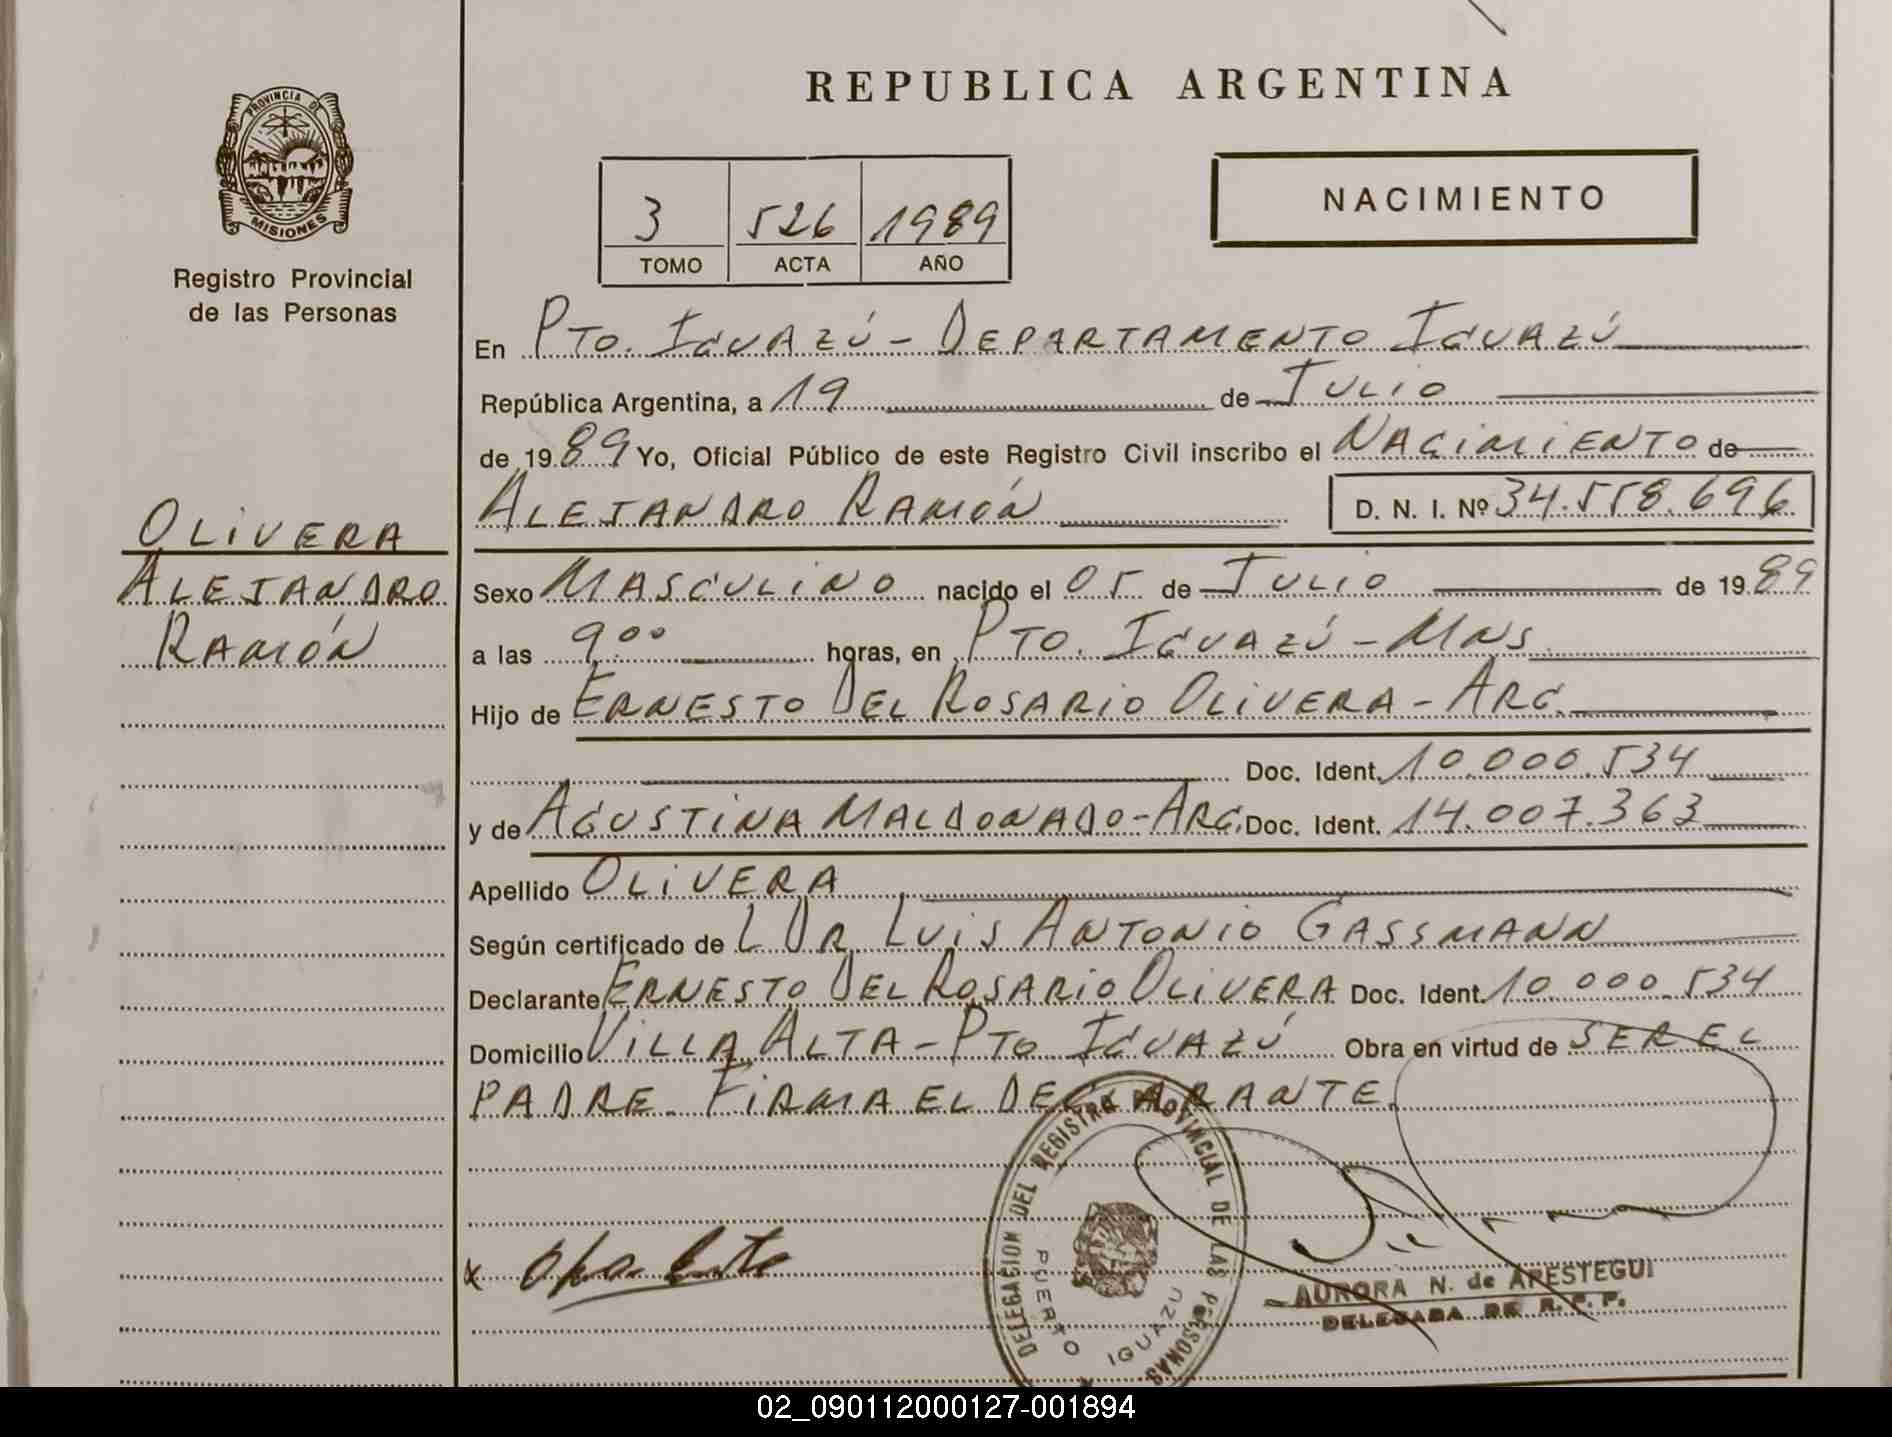 REPUBLICA ARGENTINA
PROVINCIA DE
MISIONES
Registro Provincial
de las Personas
NACIMIENTO
3 526 1989
TOMO ACTA AÑO
En PTO. IGUAZÚ - DEPARTAMENTO IGUAZÚ
República Argentina, a 19 de JULIO
de 1989 Yo, Oficial Público de este Registro Civil inscribo el NACIMIENTO de
ALEJANDRO RAMÓN D. N. I. Nº 34.558.696
OLIVERA
ALEJANDRO
RAMÓN
Sexo MASCULINO nacido el 05 de JULIO de 1989
a las 9⁰⁰ horas, en PTO. IGUAZÚ - MNS
Hijo de ERNESTO DEL ROSARIO OLIVERA - ARG.
Doc. Ident. 10.000.534
y de AGUSTINA MALDONADO - ARG. Doc. Ident. 14.007.363
Apellido OLIVERA
Según certificado de L DR LUIS ANTONIO GASSMANN
Declarante ERNESTO DEL ROSARIO OLIVERA Doc. Ident. 10.000.534
Domicilio VILLA ALTA - PTO IGUAZÚ Obra en virtud de SER EL
PADRE. FIRMA EL DECLARANTE.
DELEGACION DEL REGISTRO PROVINCIAL DE LAS PERSONAS
PUERTO IGUAZU
x
AURORA N. de APESTEGUI
DELEGADA DE R. P. P.
02_090112000127-001894